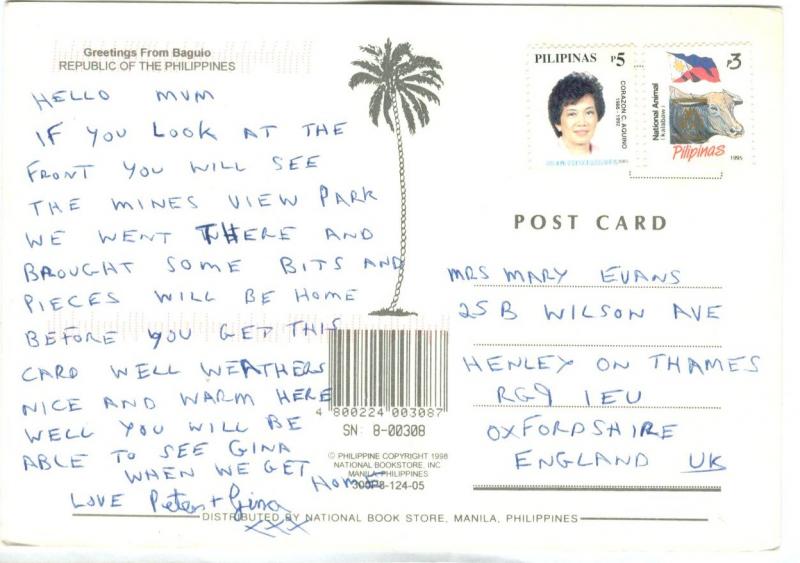 Greetings From Baguio
REPUBLIC OF THE PHILIPPINES
HELLO MUM
IF YOU LOOK AT THE
FRONT YOU WILL SEE
THE MINES VIEW PARK
WE WENT THERE AND
BROUGHT SOME BITS AND
PIECES WILL BE HOME
BEFORE YOU GET THIS
CARD WELL WEATHERS
NICE AND WARM HERE
WELL YOU WILL BE
ABLE TO SEE GINA
WHEN WE GET HOME
LOVE Peter + Gina
XXX
PILIPINAS P5
CORAZON C. AQUINO
1986 - 1992
P3
National Animal
(kalabaw)
Pilipinas
1995
POST CARD
MRS MARY EVANS
25B WILSON AVE
HENLEY ON THAMES
RG9 1EU
OXFORDSHIRE
ENGLAND UK
4 800224 003087
SN: 8-00308
© PHILIPPINE COPYRIGHT 1998
NATIONAL BOOKSTORE, INC
MANILA PHILIPPINES
300P8-124-05
DISTRIBUTED BY NATIONAL BOOK STORE, MANILA, PHILIPPINES